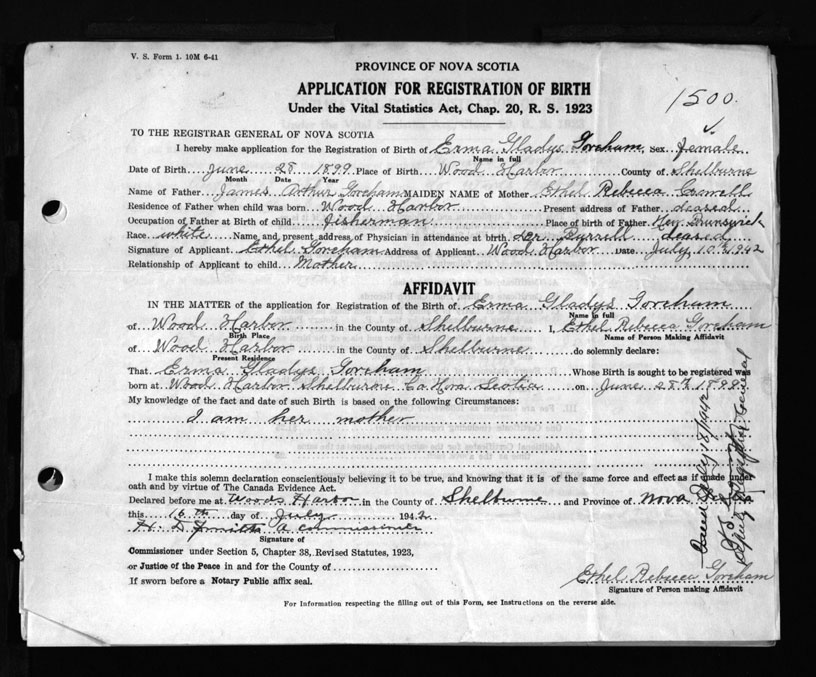 V. S. Form 1. 10M 6-41
PROVINCE OF NOVA SCOTIA
APPLICATION FOR REGISTRATION OF BIRTH
Under the Vital Statistics Act, Chap. 20, R. S. 1923
1500.
TO THE REGISTRAR GENERAL OF NOVA SCOTIA
I hereby make application for the Registration of Birth of Erma Gladys Goreham Sex female
Name in full
Date of Birth June 28 1899 Place of Birth Wood Harbor County of Shelburne
Month Date Year
Name of Father James Arthur Goreham MAIDEN NAME of Mother Ethel Rebecca Crowell
Residence of Father when child was born Wood Harbor Present address of Father deceased
Occupation of Father at Birth of child fisherman Place of birth of Father New Brunswick
Race white Name and present address of Physician in attendance at birth Dr. deceased
Signature of Applicant Ethel Goreham Address of Applicant Wood Harbor Date July 10th 1942
Relationship of Applicant to child Mother
AFFIDAVIT
IN THE MATTER of the application for Registration of the Birth of Erma Gladys Goreham
Name in full
of Wood Harbor in the County of Shelburne I, Ethel Rebecca Goreham
Birth Place Name of Person Making Affidavit
of Wood Harbor in the County of Shelburne do solemnly declare:
Present Residence
That Erma Gladys Goreham Whose Birth is sought to be registered was
born at Wood Harbor Shelburne Co Nova Scotia on June 28th 1899
My knowledge of the fact and date of such Birth is based on the following Circumstances:
I am her mother
I make this solemn declaration conscientiously believing it to be true, and knowing that it is of the same force and effect as if made under
oath and by virtue of The Canada Evidence Act.
Declared before me at Woods Harbor in the County of Shelburne and Province of Nova Scotia
this 16th day of July 1942
H. D. Smith A Commissioner
Signature of
Commissioner under Section 5, Chapter 38, Revised Statutes, 1923,
or Justice of the Peace in and for the County of
If sworn before a Notary Public affix seal.
Ethel Rebecca Goreham
Signature of Person making Affidavit
For Information respecting the filling out of this Form, see Instructions on the reverse side.
July 18/1942
Deputy Registrar General